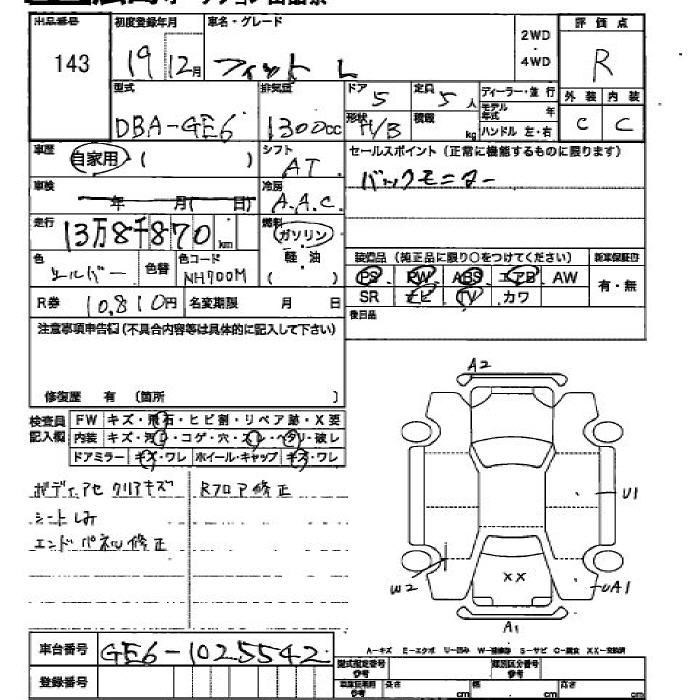 出品番号
143
初度登録年月
19 12月
車名・グレード
フィット L
2WD
・
4WD
評価点
R
型式
DBA-GE6
排気量
1300cc
ドア 5
定員 5人
形状 H/B
積載 kg
ディーラー・並行
モデル年式 年
ハンドル 左・右
外装 内装
C C
車歴 自家用 ( )
シフト AT
セールスポイント (正常に機能するものに限ります)
バックモニター
車検 年 月( 日)
冷房 A.A.C.
走行 13万8千870km
燃料 ガソリン
軽・油
( )
色 シルバー 色替
色コード NH700M
装備品 (純正品に限り○をつけてください)
新車保証書
PS PW ABS エアB AW
有・無
SR ナビ TV カワ
R券 10,810円
名変期限 月 日
後日品
注意事項申告欄(不具合内容等は具体的に記入して下さい)
修復歴 有 (箇所 )
検査員記入欄
FW キズ・飛石・ヒビ割・リペア跡・X要
内装 キズ・汚レ・コゲ・穴・スレ・ヘタリ・破レ
ドアミラー キズ・ワレ ホイール・キャップ キズ・ワレ
ボディアセ クリアキズ
シートしみ
エンドパネル修正
Rフロア修正
A2
U1
W2
XX
UA1
A1
車台番号 GE6-1025542
登録番号
A-キズ E-エクボ U-凹み W-補修跡 S-サビ C-腐食 XX-交換済
型式指定番号
参考
類別区分番号
参考
参考
長さ cm
幅 cm
高さ cm